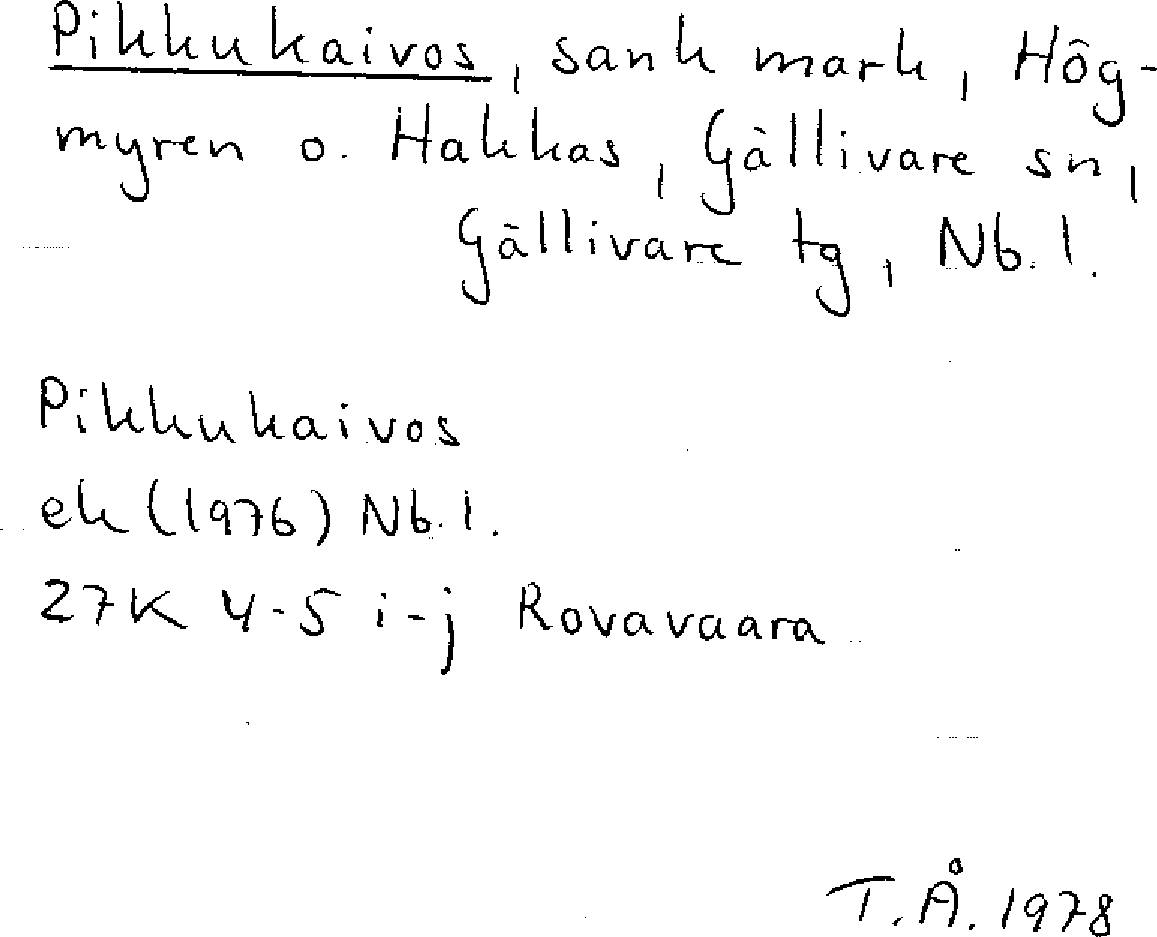 Pikkukaivos, sank mark, Hög-
myren o. Hakkas, Gällivare sn,
Gällivare tg, Nb. l.
Pikkukaivos
ek (1976) Nb. l.
27K 4-5 i-j Rovavaara
T.Å. 1978